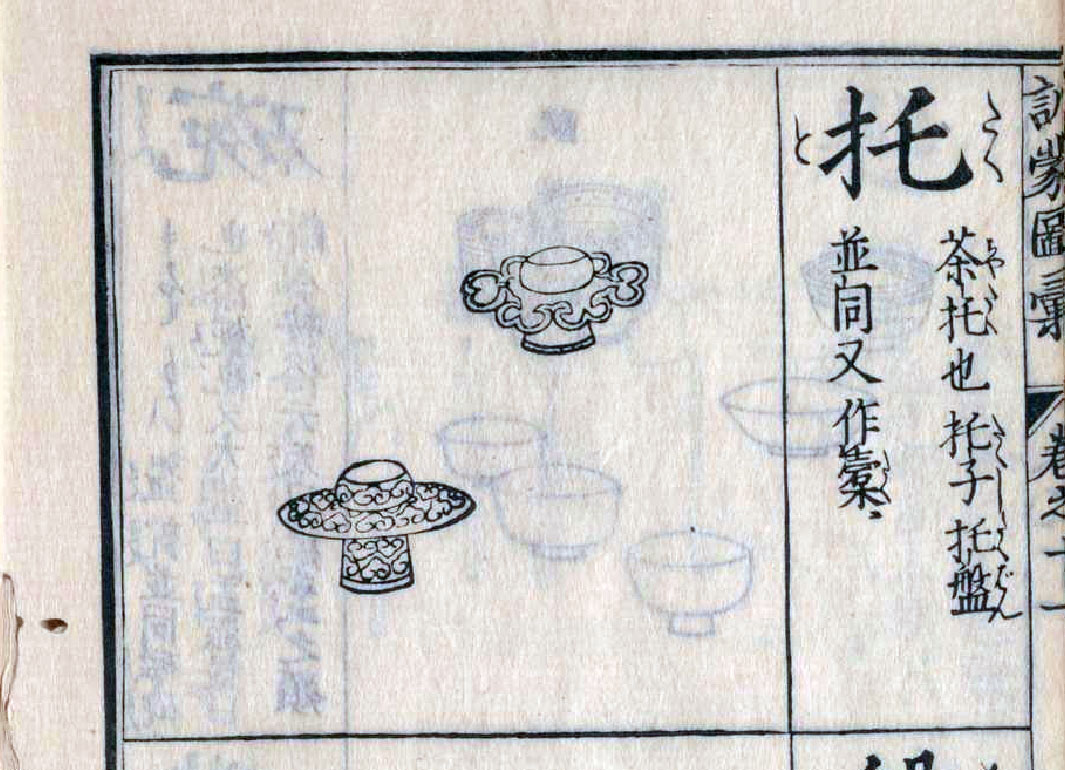 訓蒙圖彙 卷之十一
たく
托
と
茶托也 托子 托盤
並同又作槖